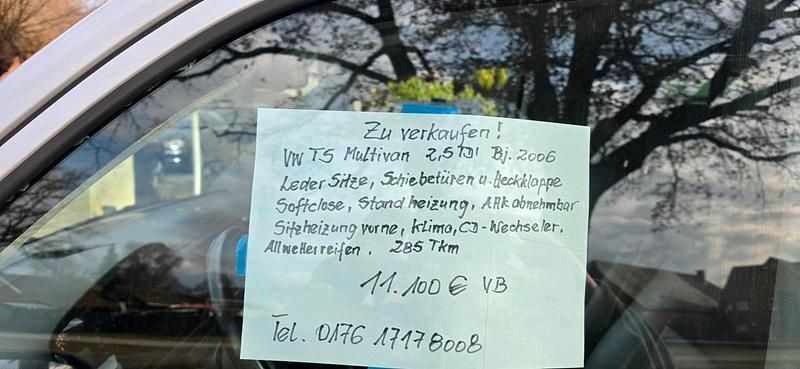 Zu verkaufen!
VW T5 Multivan 2,5 TDI Bj. 2006
Leder Sitze, Schiebetüren u. Heckklappe
Softclose, Standheizung, AHK abnehmbar
Sitzheizung vorne, Klima, CD-Wechseler,
Allwetterreifen, 285 Tkm
11.100 € VB
Tel. 0176 17178008